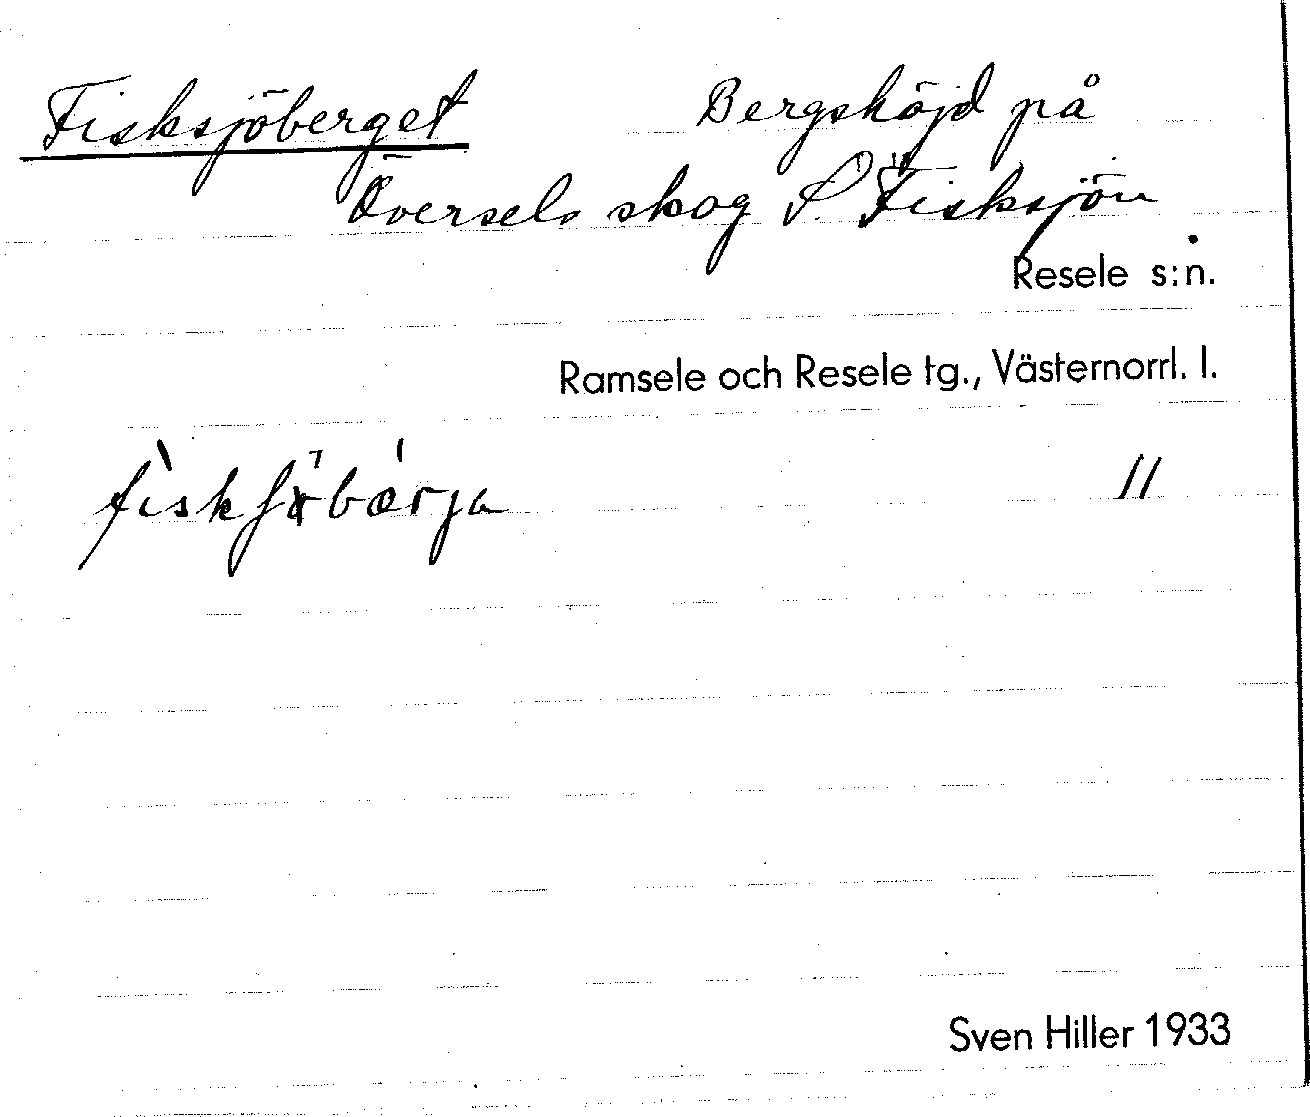 Fisksjöberget Bergshöjd på
Översels skog S. Fisksjön
Resele s:n.
Ramsele och Resele tg., Västernorrl. l.
11
Sven Hiller 1933